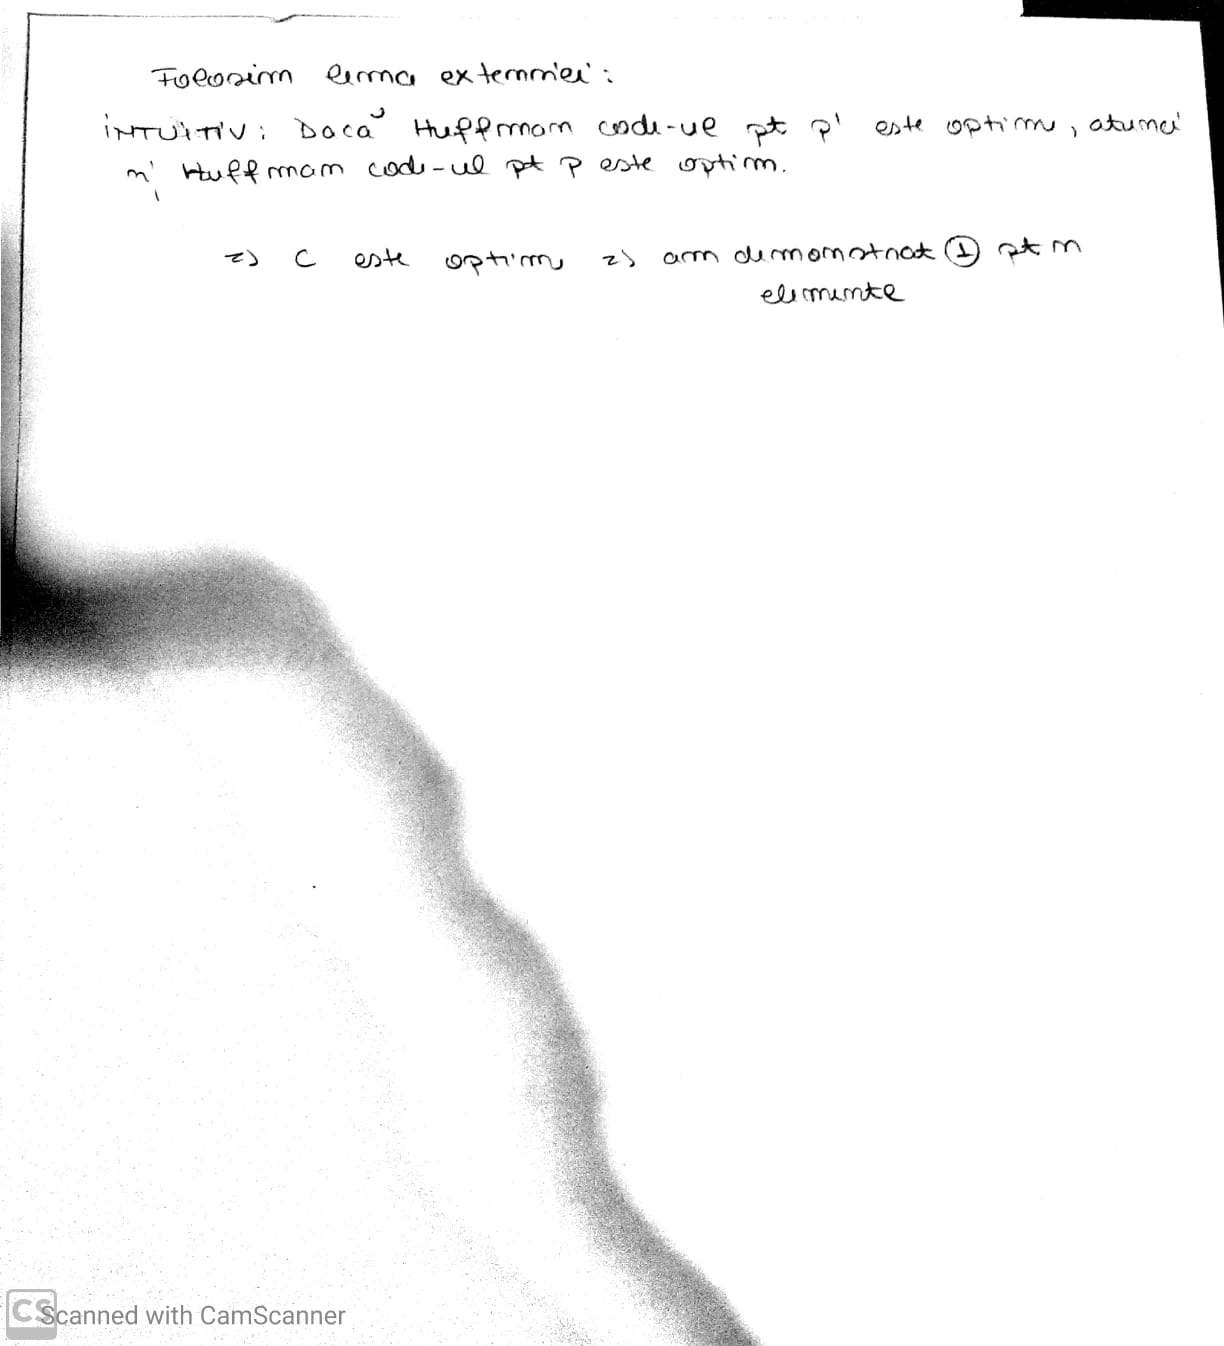 Folosim lema extensiei:
INTUITIV: Dacă Huffman code-ul pt p' este optim, atunci
și Huffman code-ul pt p este optim.
=> C este optim => am demonstrat ① pt n
elemente
CS Scanned with CamScanner